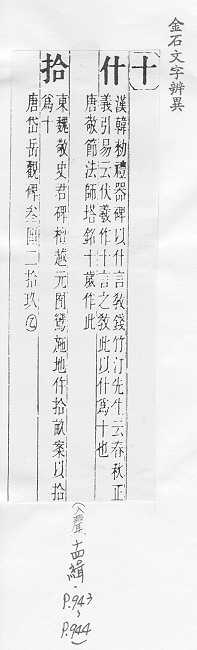 金石文字辨異
十
什
漢韓勑禮器碑以什言敎錢竹汀先生云春秋正
義引易云伏羲作十言之敎此以什爲十也
唐敬節法師塔銘十歲作此
拾
東魏敬史君碑桓越元囿鷲施地什拾畝案以拾
爲十
唐岱岳觀碑叁月二拾玖㋡
(入聲.十四緝.
P.943
~
P.944)